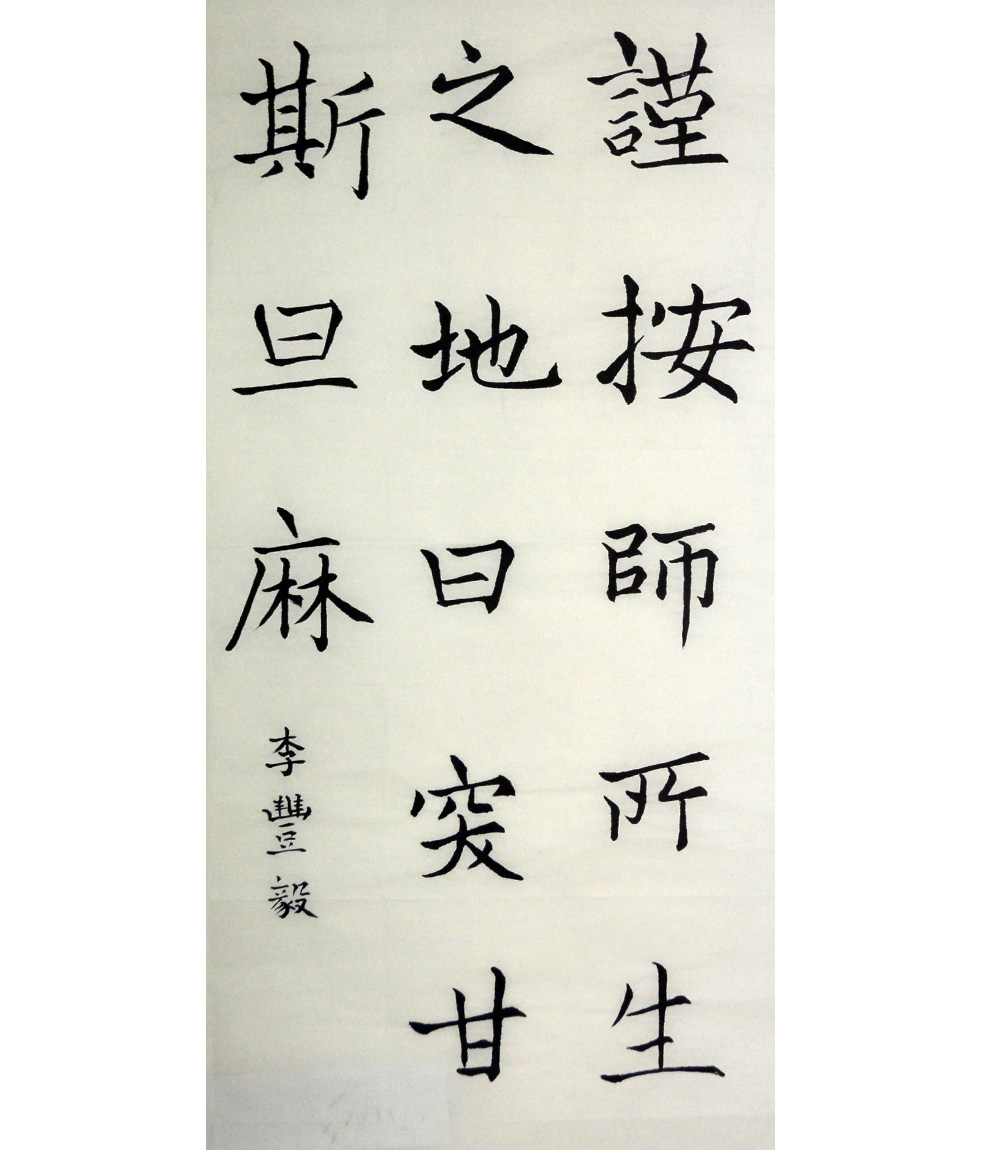 謹按師所生
之地曰突甘
斯旦麻
李豐毅